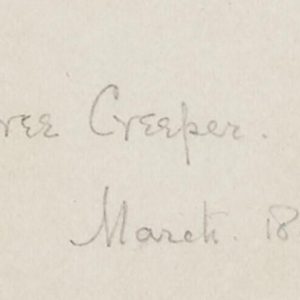 ree Creeper.
March. 18